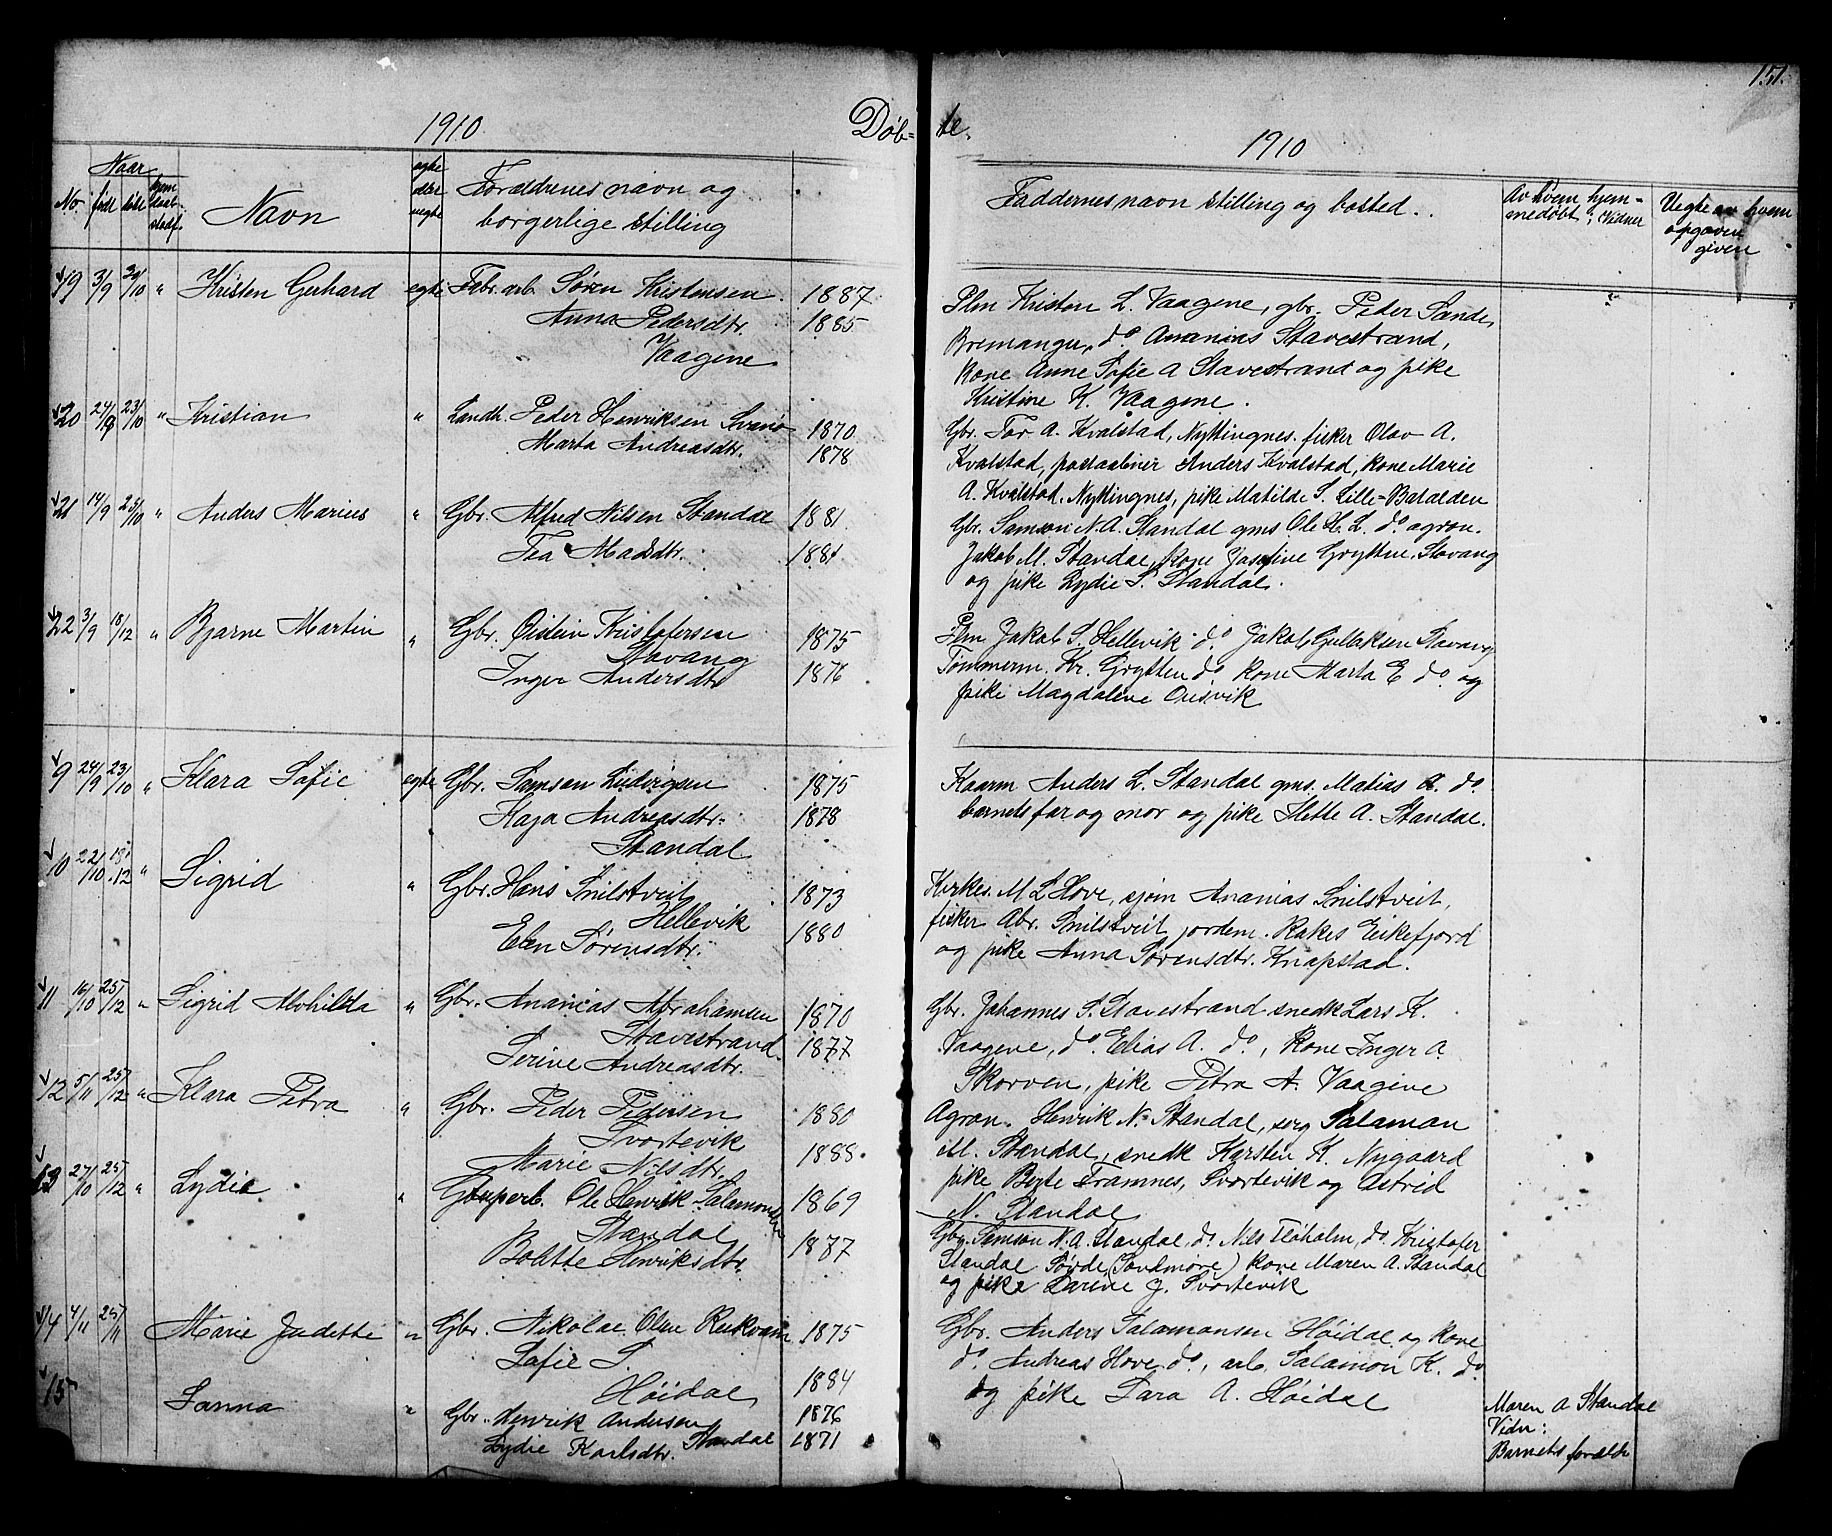 151.
1910. Døb= te. 1910
Naar
No. født døbt hjem. daab. stadf. Navn egte eller uegte Forældrenes navn og borgerlige stilling Faddernes navn stilling og bosted. Av hvem hjemmedøbt; Vidner Uegte av hvem opgaven given
19 3/9 30/10 " Kristen Gerhard egte Fabr. arb. Søren Kristensen 1887
Anna Pedersdtr. 1885
Vaagene
Plm Kristen L. Vaagene, gbr. Peder Sande,
Bremanger, do Ananias Stavestrand,
kone Anne Sofie A Stavestrand og pike
Kristine K. Vaagene.
20 24/9 23/10 " Kristian " Landh. Peder Henriksen Svanø 1870
Marta Andreasdtr. 1878
Gbr. Tor A. Kvalstad, Nyttingnes. fisker Olav A.
Kvalstad, postaabner Anders Kvalstad, kone Marie
A. Kvalstad. Nyttingnes, pike Matilde S. Lille-Batalden
21 14/9 23/10 " Anders Marius " Gbr. Alfred Nilsen Standal 1881
Tea Madsdtr. 1881
Gbr. Samson N. A. Standal gms Ole H. L. do agron.
Jakob M. Standal, kone Josefine Grytten, Stavang
og pike Lydie S. Standal.
22 3/9 18/12 " Bjarne Martin " Gbr. Øistein Kristofersen 1875
Stavang
Inger Andersdtr 1876
Plm Jakob S. Hellevik do Jakob Gullaksen Stavang
Tømmerm. Kr. Grytten do kone Marta E do og
pike Magdalene Ousvik
9 24/9 23/10 " Klara Sofie egte Gbr. Samson Ludvigsen 1875
Kaja Andreasdtr. 1878
Standal
Kaarm Anders L. Standal gms. Matias A. do
barnets far og mor og pike Mette A. Standal.
10 22/10 18/12 " Sigrid " Gbr. Hans Snilstveit 1873
Hellevik
Elen Sørensdtr. 1880
Kirkes. M L Hove, sjøm Ananias Snilstveit,
fisker Abr. Snilstveit jordem. Rakel Eikefjord
og pike Anna Sørensdtr. Knapstad.
11 16/10 25/12 " Sigrid Alvhilda " Gbr. Ananias Abrahamsen 1870
Stavestrand
Serine Andreasdtr. 1877
Gbr. Johannes S. Stavestrand snedk Lars K.
Vaagene, do. Elias A. do, kone Inger A.
Skorven, pike Petra A. Vaagene
12 5/11 25/12 " Klara Petra " Gbr. Peder Pedersen 1880
Svortevik
Marie Nilsdtr. 1888
Agron. Henrik N. Standal, serg Salamon
M. Standal, snedk Karsten K. Nygaard
pike Berte Framnes, Svortevik og Astrid
N. Standal
13 27/10 25/12 " Lydie " Ole Henrik Salamonsen 1869
Standal
Bolette Henriksdtr. 1877
Gbr. Samson N. A. Standal, do. Nils Fløholm, do. Kristofer
Standal Sørde (Søndmøre) kone Maren A. Standal
og pike Darine J. Svortevik
14 4/11 25/11 Marie Judette " Gbr. Nikolai Olsen Reikvam 1875
Sofie S.
Høidal 1884
Gbr. Anders Salamonsen Høidal og kone
do. Andreas Hove do, arb. Salamon K. do
og pike Sara A. Høidal
15 Sanna " Gbr. Henrik Andersen 1876
Lydie Karlsdtr. Standal 1871
Maren A Standal
Vidn:
Barnets forældr